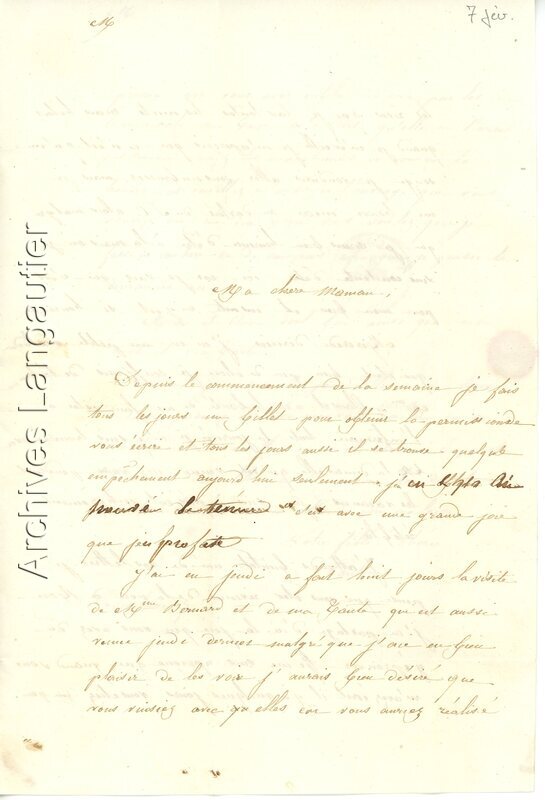 7 fév.
M
Archives Langautier
Ma chère Maman,
Depuis le commencement de la semaine je fais
tous les jours un billet pour obtenir la permission de
vous écrire et tous les jours aussi il se trouve quelque
empêchement aujourd'hui seulement j'ai
et c'est avec une grande joie
que j'en profite
J'ai eu jeudi a fait huit jours la visite
de Mme Bernard et de ma Tante qui est aussi
venue jeudi dernier malgré que j'aie eu bien
plaisir de les voir j'aurais bien désiré que
vous vinsiez avec elles car vous auriez réalisé